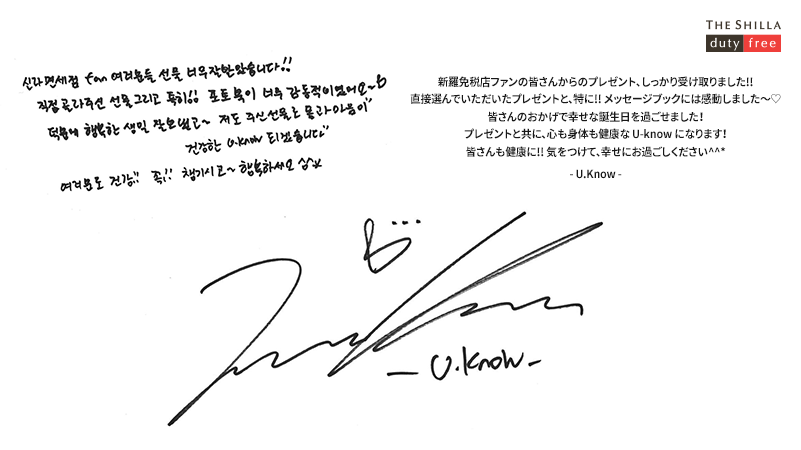 THE SHILLA
duty free
신라면세점 fan 여러분들 선물 너무 잘 받았습니다!!
직접 골라주신 선물 그리고 특히!! 포토북이 너무 감동적이었어요~
덕분에 행복한 생일 잘 보냈고~ 저도 주신 선물로 몸과 마음이
건강한 U.know 되겠습니다
여러분도 건강!! 꼭!! 챙기시고~ 행복하세요
新羅免税店ファンの皆さんからのプレゼント、しっかり受け取りました!!
直接選んでいただいたプレゼントと、特に!! メッセージブックには感動しました〜♡
皆さんのおかげで幸せな誕生日を過ごせました!
プレゼントと共に、心も身体も健康な U-know になります!
皆さんも健康に!! 気をつけて、幸せにお過ごしください^^*
- U.Know -
- U.Know -